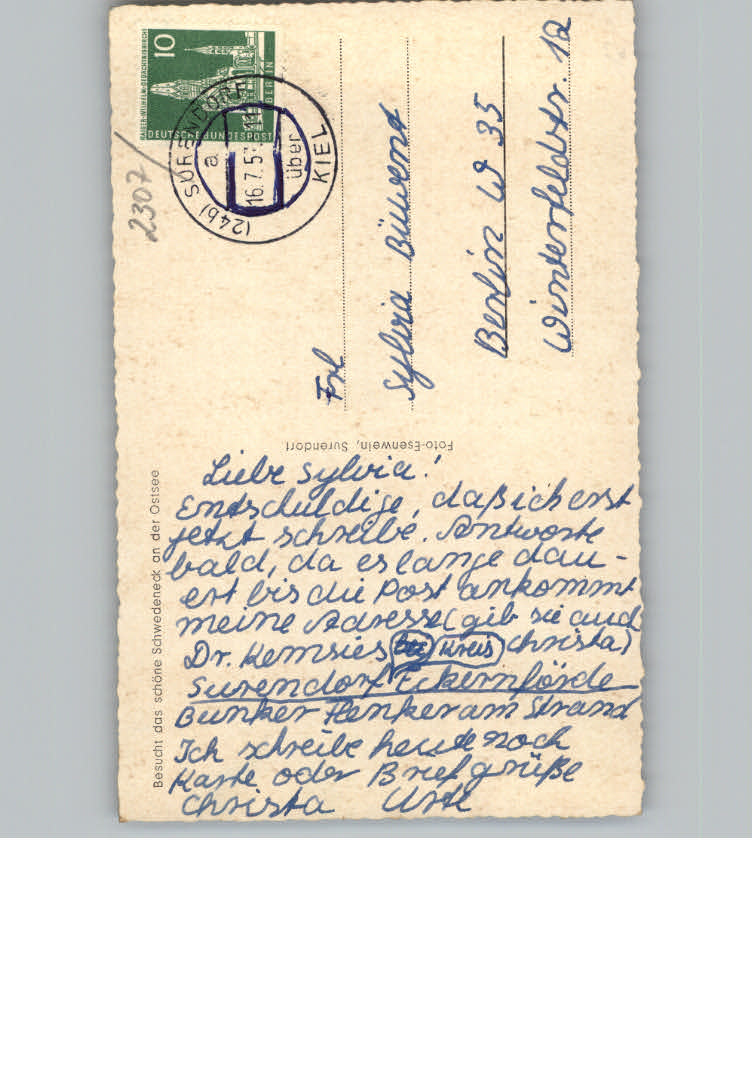 Liebe Sylvia!
Entschuldige, daß ich erst
jetzt schreibe. Antworte
bald, da es lange dau-
ert bis die Post ankommt
meine Adresse (gib sie auch
Dr. Kemsies Kreis Christa)
Surendorf Eckernförde
Bunker Henker am Strand
Ich schreibe heute noch
Karte oder Brief grüße
Christa
Besucht das schöne Schwedeneck an der Ostsee
Foto-Esenwein, Surendorf
Frl
Sylvia
Berlin W 35
Winterfeldstr. 12
10
KAISER-WILHELM-GEDÄCHTNISKIRCHE
DEUTSCHE BUNDESPOST
BERLIN
(24b) SURENDORF
a
16.7.5
über
KIEL
2307